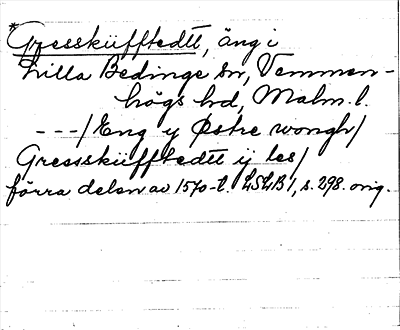 *Gresskiifftedtt, äng i
Lilla Bedinge sn, Vemmen-
högs hd, Malm. l.
---/Eng y Østre wongh/
Gressskiifftedtt ij les/
förra delen av 1570-t. LSLB 1, s. 298. orig.